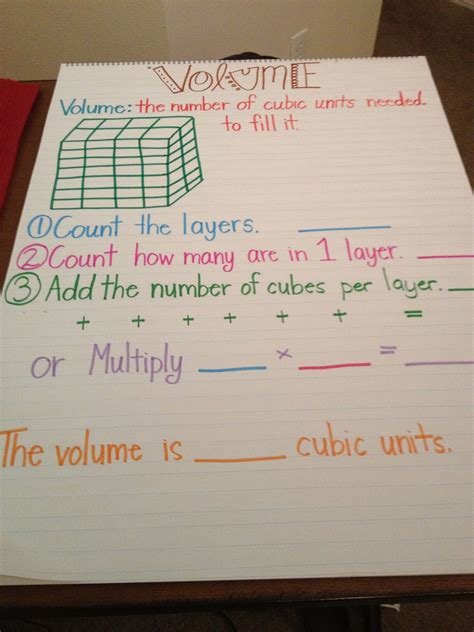 VOLUME
Volume: the number of cubic units needed
to fill it.
①Count the layers. ______
②Count how many are in 1 layer. ____
③Add the number of cubes per layer. __
+ + + + + + =
or Multiply ____ × ____ = ____
The volume is _____ cubic units.